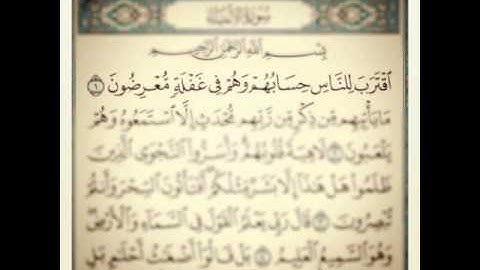 سُورَةُ الْأَنْبِيَاءِ
بِسْمِ اللَّهِ الرَّحْمَٰنِ الرَّحِيمِ
ٱقْتَرَبَ لِلنَّاسِ حِسَابُهُمْ وَهُمْ فِي غَفْلَةٍ مُّعْرِضُونَ ١
مَا يَأْتِيهِم مِّن ذِكْرٍ مِّن رَّبِّهِم مُّحْدَثٍ إِلَّا ٱسْتَمَعُوهُ وَهُمْ
يَلْعَبُونَ ٢ لَاهِيَةً قُلُوبُهُمْ وَأَسَرُّوا۟ ٱلنَّجْوَى ٱلَّذِينَ
ظَلَمُوا۟ هَلْ هَٰذَآ إِلَّا بَشَرٌ مِّثْلُكُمْ أَفَتَأْتُونَ ٱلسِّحْرَ وَأَنتُمْ
تُبْصِرُونَ ٣ قَالَ رَبِّي يَعْلَمُ ٱلْقَوْلَ فِي ٱلسَّمَآءِ وَٱلْأَرْضِ
وَهُوَ ٱلسَّمِيعُ ٱلْعَلِيمُ ٤ بَلْ قَالُوٓا۟ أَضْغَٰثُ أَحْلَٰمٍ بَلِ